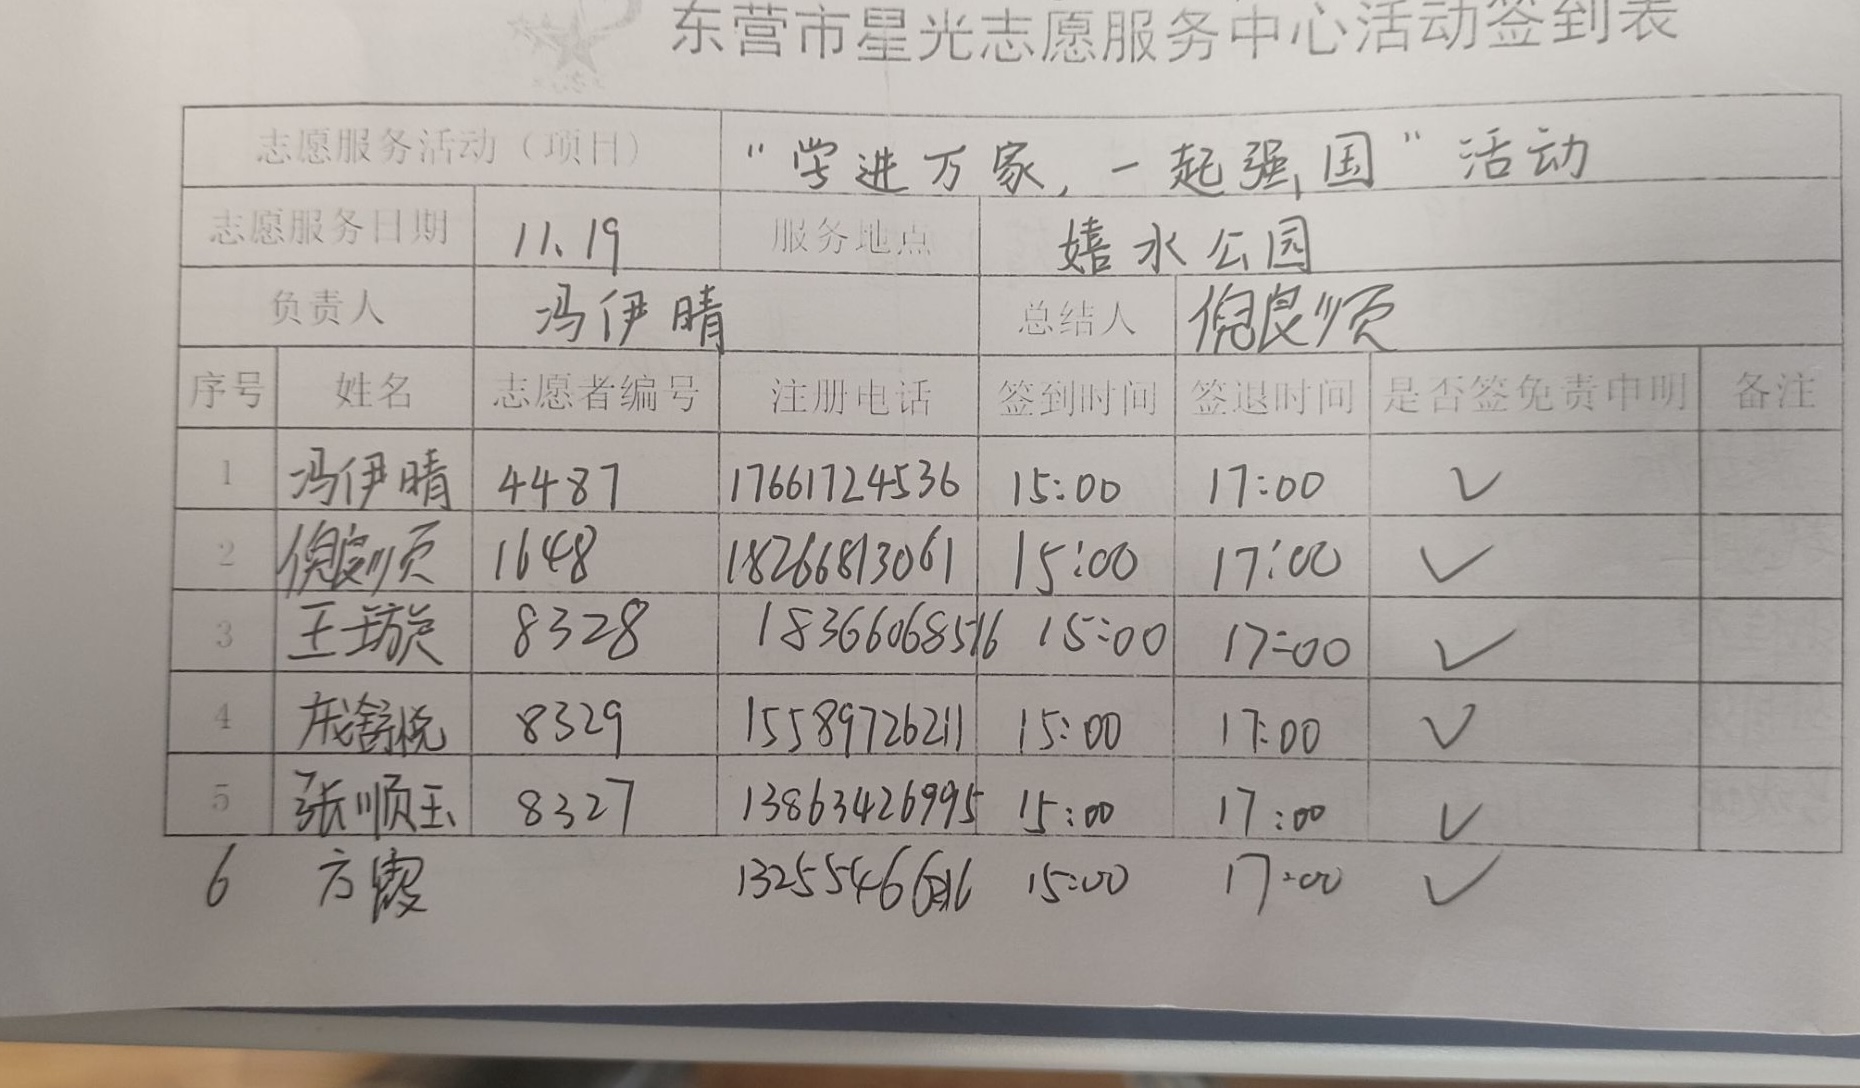 东营市星光志愿服务中心活动签到表
志愿服务活动（项目） “学进万家，一起强国”活动
志愿服务日期 11.19 服务地点 嬉水公园
负责人 冯伊晴 总结人 倪良顺
序号 姓名 志愿者编号 注册电话 签到时间 签退时间 是否签免责申明 备注
1 冯伊晴 4487 17661724536 15:00 17:00 ✓
2 倪良顺 1648 18266813061 15:00 17:00 ✓
3 王璇 8328 18366068516 15:00 17:00 ✓
4 成舒悦 8329 15589726211 15:00 17:00 ✓
5 张顺玉 8327 13863426995 15:00 17:00 ✓
6 方霞 15:00 17:00 ✓